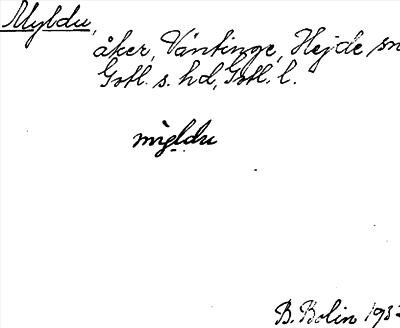 Myldu,
åker, Väntinge, Hejde sn
Gotl. s. hd, Gotl. l.
mỳldu
B. Bolin 193